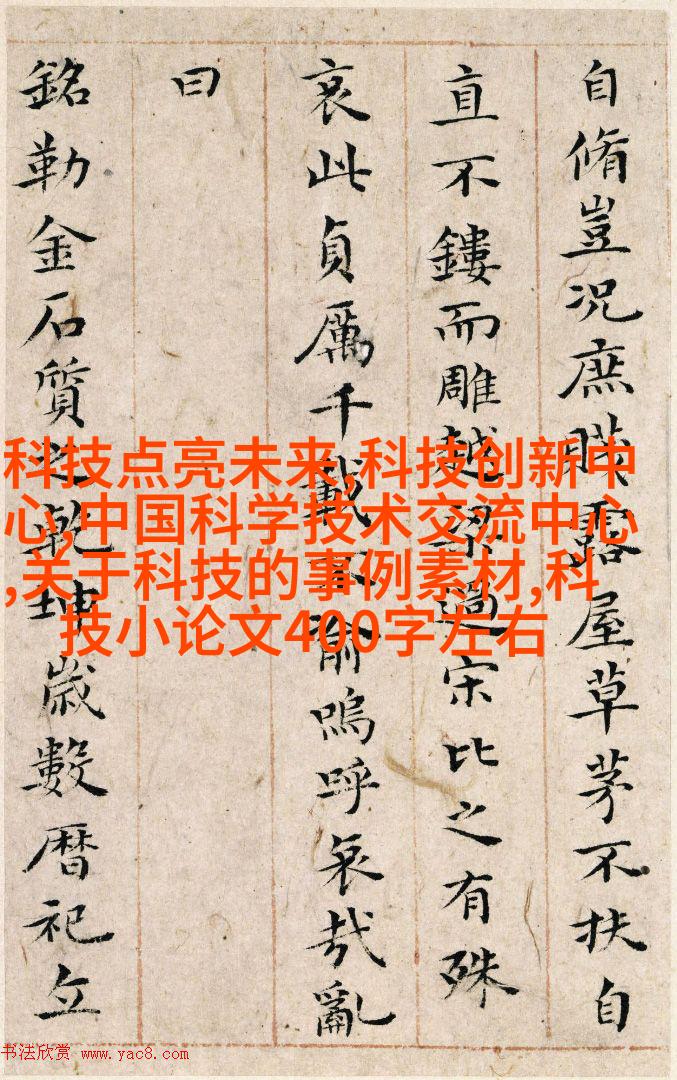 自脩豈況庶賤露屋草茅不扶自
直不鏤而雕越梁過宋比之有殊
哀此貞厲千載不渝嗚呼哀哉亂
曰
銘勒金石質之乾坤歲數曆祀立
科技点亮未来,科技创新中
心,中国科学技术交流中心
,关于科技的事例素材,科
技小论文400字左右
书法欣赏 www.yac8.com